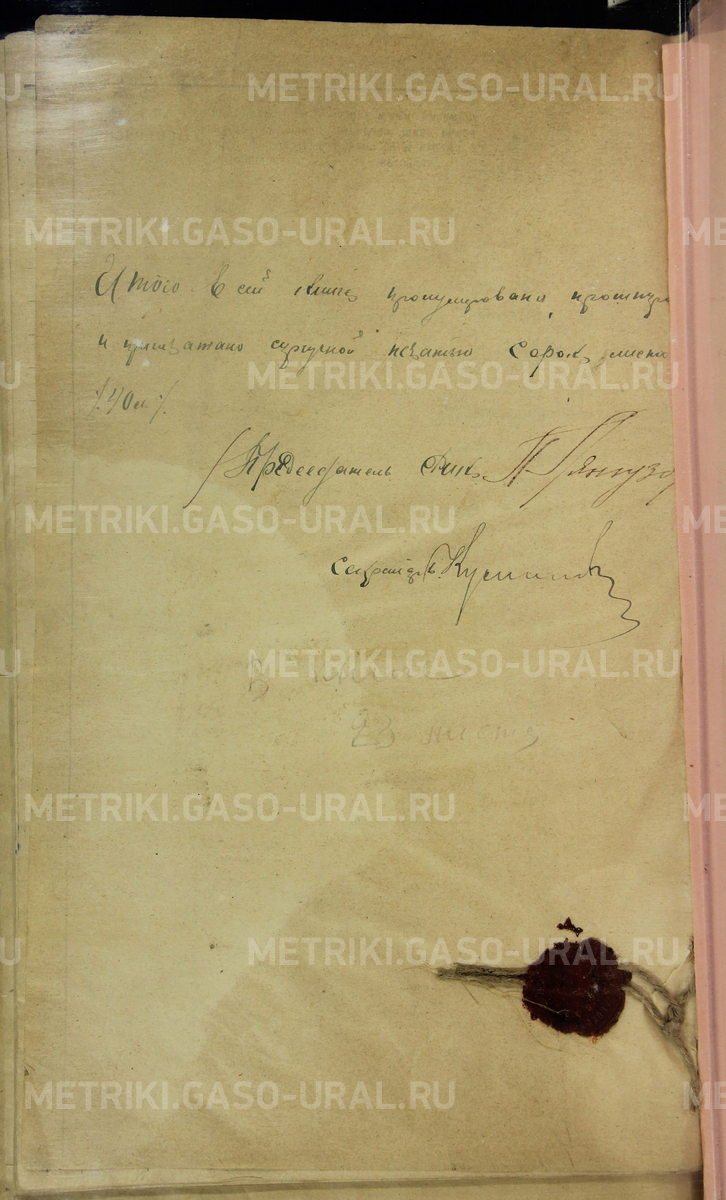 METRIKI.GASO-URAL.RU
METRIKI.GASO-URAL.RU
Итого в сей книге пронумеровано, прошнуро
и припечатано сургучной печатью сорок листа
METRIKI.GASO-URAL.RU
/:40 л:/.
Председатель Рик
METRIKI.GASO-URAL.RU
Секретарь
METRIKI.GASO-URAL.RU
В
23 листа
METRIKI.GASO-URAL.RU
METRIKI.GASO-URAL.RU
METRIKI.GASO-URAL.RU